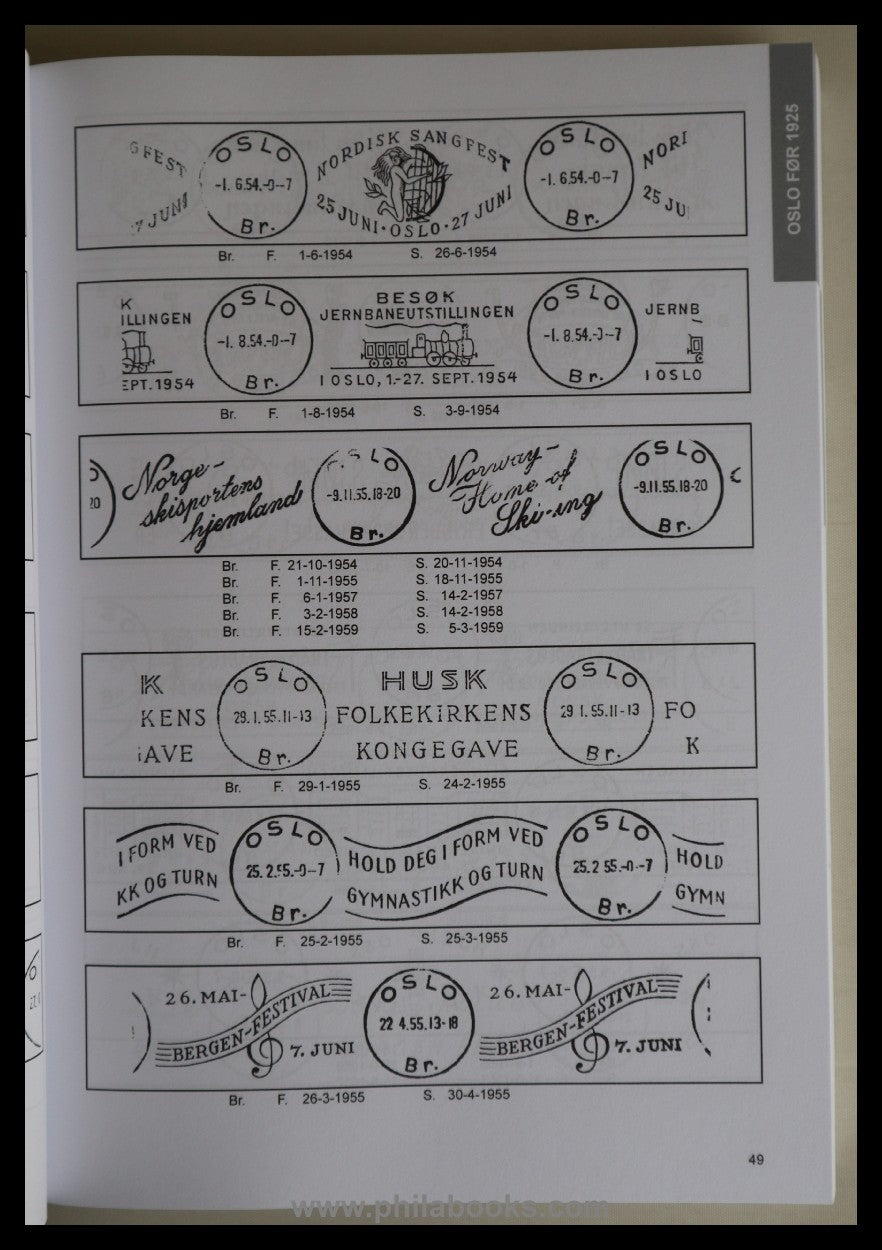 OSLO FØR 1925
G FEST
7 JUNI
OSLO
-1. 6.54.-0--7
Br.
NORDISK SANGFEST
25 JUNI · OSLO · 27 JUNI
OSLO
-1. 6.54.-0--7
Br.
NORI
25 JU
Br. F. 1-6-1954 S. 26-6-1954
K
ILLINGEN
EPT. 1954
OSLO
-1. 8.54.-0--7
Br.
BESØK
JERNBANEUTSTILLINGEN
I OSLO, 1.-27. SEPT. 1954
OSLO
-1. 8.54.-0--7
Br.
JERNB
I OSLO
Br. F. 1-8-1954 S. 3-9-1954
O
20
Norge-
skisportens
hjemland
OSLO
-9.11.55.18-20
Br.
Norway-
Home of
Ski-ing
OSLO
-9.11.55.18-20
Br.
Br. F. 21-10-1954 S. 20-11-1954
Br. F. 1-11-1955 S. 18-11-1955
Br. F. 6-1-1957 S. 14-2-1957
Br. F. 3-2-1958 S. 14-2-1958
Br. F. 15-2-1959 S. 5-3-1959
K
KENS
AVE
OSLO
29.1.55.11-13
Br.
HUSK
FOLKEKIRKENS
KONGEGAVE
OSLO
29 1.55.11-13
Br.
FO
K
Br. F. 29-1-1955 S. 24-2-1955
I FORM VED
KK OG TURN
OSLO
25.2.55.-0--7
Br.
HOLD DEG I FORM VED
GYMNASTIKK OG TURN
OSLO
25.2 55.-0.-7
Br.
HOLD
GYMN
Br. F. 25-2-1955 S. 25-3-1955
26. MAI-
BERGEN-FESTIVAL
7. JUNI
OSLO
22 4.55.13-18
Br.
26. MAI-
BERGEN-FESTIVAL
7. JUNI
Br. F. 26-3-1955 S. 30-4-1955
49
www.philabooks.com